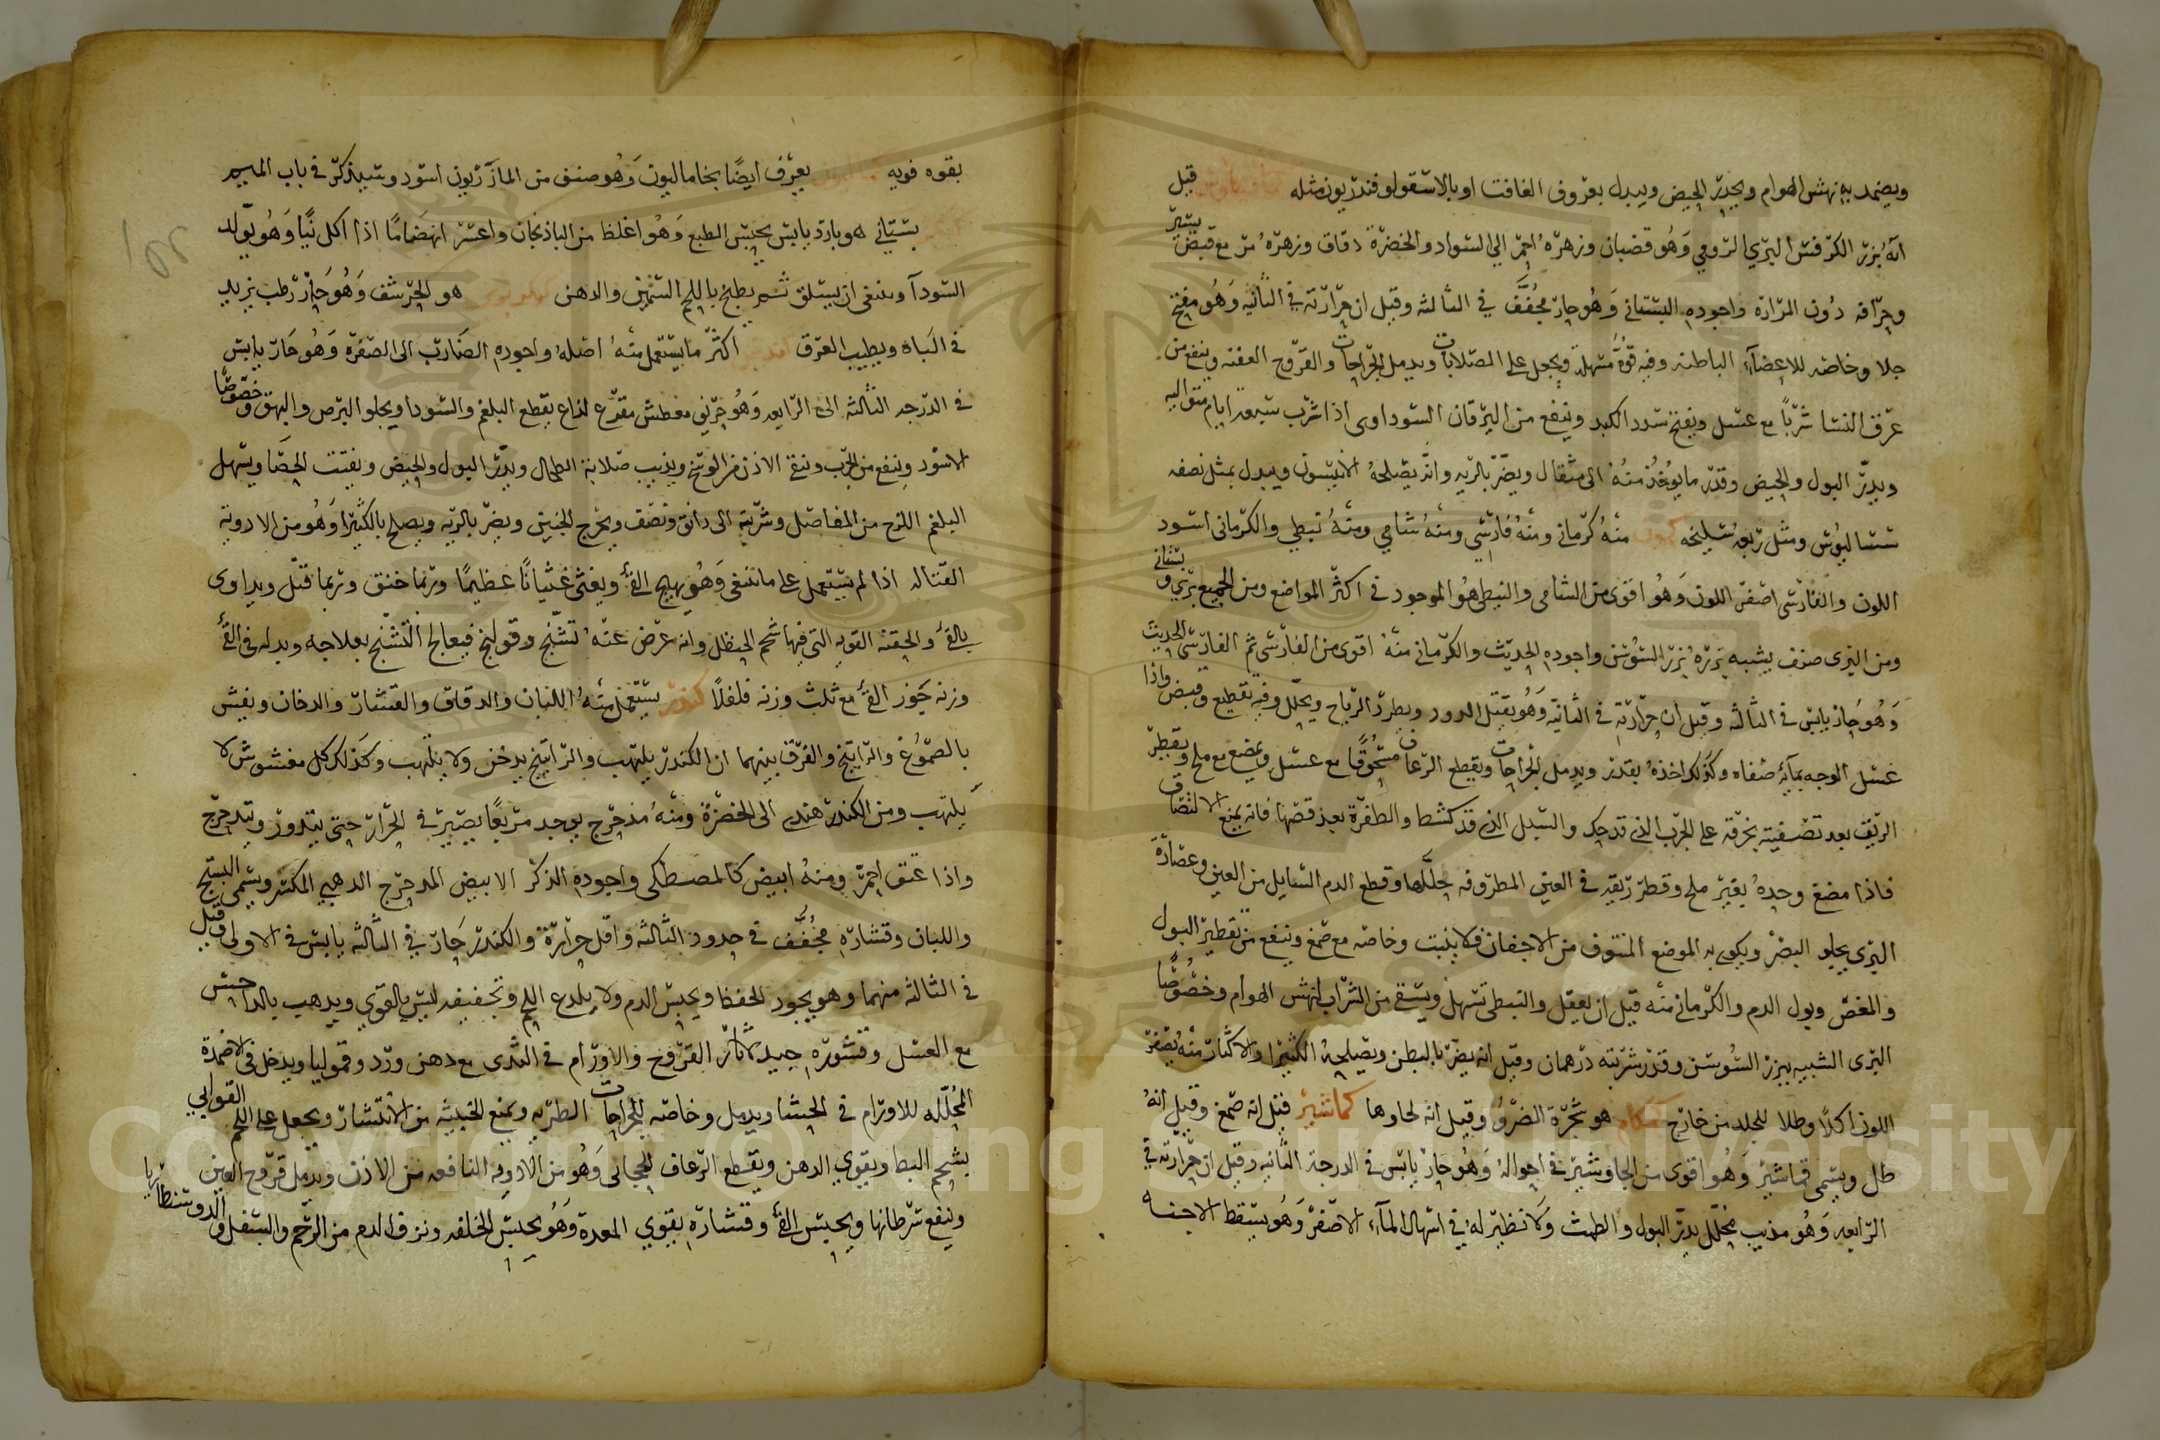 ويضمد به نهش الهوام ويدر الحيض ويبدل بعروق الغافت او بالاسقولوقندريون مثله كمافيطوس قيل
انه بزر الكرفس البري الرومي وهو قضبان وزهره احمر الى السواد والخضرة دقاق وزهره مر مع قبض يسير
وحرافه دون المرارة واجوده البستاني وهو حار مجفف في الثالثه وقيل ان حرارته في الثانيه وهو مفتح
جلا وخاصه للاعضاء الباطنه وفيه قوة مسهلة ويجعل على الصلابات ويدمل الجراحات والقروح العفنه وينفع من
عرق النسا شربا مع عسل ويفتح سدد الكبد وينفع من اليرقان السوداوي اذا شرب سبعة ايام متواليه
ويدر البول والحيض وقدر ما يؤخذ منه الى مثقال ويضر بالريه وانه يصلحه الانيسون ويبدل بمثل نصفه
سساليوس ومثل ربعه سليخه كمون منه كرماني ومنه فارسي ومنه شامي ومنه نبطي والكرماني اسود
اللون والفارسي اصفر اللون وهو اقوى من الشامي والنبطي هو الموجود في اكثر المواضع ومن الجميع بري وبستاني
ومن البري صنف يشبه بزره بزر السوسن واجوده الحديث والكرماني منه اقوى من الفارسي ثم الفارسي الحديث
وهو حار يابس في الثالثه وقيل ان حرارته في الثانيه وهو يقتل الدود ويطرد الرياح ويحلل وفيه تقطيع وقبض واذا
غسل الوجه بمايه صفاه وكذلك اخذه بقدر ويدمل الجراحات ويقطع الرعاف مسحوقا مع عسل ويمضغ مع ملح ويقطر
الريق بعد تصفيته بخرقه على الجرب الذي قد حك والسبل الذي قد كشط والظفرة بعد قصها فانه يمنع الالتصاق
فاذا مضغ وحده بغير ملح وقطر ريقه في العين المطروفه حللها وقطع الدم السايل من العين وعصارة
البري يجلو البصر ويكوى به الموضع المنتوف من الاجفان فلا ينبت وخاصه مع صمغ وينفع من تقطير البول
والمغص وبول الدم والكرماني منه قيل ان يعقل والنبطي تسهل ويسقى من الشراب لنهش الهوام وخصوصا
البري الشبيه ببزر السوسن وقدر شربته درهمان وقيل انه يضر بالبطن ويصلحه الكثيرا والاكثار منه يصفر
اللون اكلا وطلا للجلد من خارج كمكام هو شجرة الضرو وقيل انه لحاوها كماشير قيل انه صمغ وقيل انه
طل ويسمى قماشير وهو اقوى من الجاوشير في احواله وهو حار يابس في الدرجة الثانيه وقيل ان حرارته في
الرابعه وهو مذيب محلل يدر البول والطمث ولا نظير له في اسهال الماء الاصفر وهو يسقط الاجنه
بقوه قويه يعرف ايضا بخاماليون وهو صنف من المازريون اسود وسيذكر في باب الميم
بستاني هو بارد يابس يحبس الطبع وهو اغلظ من الباذنجان واعسر انهضاما اذا اكل نيا وهو يولد
السودآ وينبغي ان يسلق ثم يطبخ باللحم السمين والدهن هو الحرشف وهو حار رطب يزيد
في الباه ويطيب العرق كندس اكثر ما يستعمل منه اصله واجوده الضارب الى الصفرة وهو حار يابس
في الدرجه الثالثه الى الرابعه وهو حريف معطش مقرح لذاع يقطع البلغم والسودا ويجلو البرص والبهق وخصوصا
الاسود وينفع من الجرب وينقي الاذن من الوسخ ويذيب صلابة الطحال ويدر البول والحيض ويفتت الحصا ويسهل
البلغم اللزج من المفاصل وشربته الى دانق ونصف ويخرج الجنين ويضر بالريه ويصلح بالكثيرا وهو من الادوية
القتاله اذا لم يستعمل على ما ينبغي وهو يهيج القئ ويغثي غثيانا عظيما وربما خنق وربما قتل ويداوى
بالقئ والحقنه القويه التي فيها شحم الحنظل وانه عرض عنه تشنج وقولنج فيعالج التشنج بعلاجه وبدله في القئ
وزنه جوز القئ مع ثلث وزنه فلفلا كندر يستعمل منه اللبان والدقاق والقشار والدخان ويغش
بالصموغ والراتينج والفرق بينهما ان الكندر يلتهب والراتينج يدخن ولا يلتهب وكذلك كل مغشوش لا
يلتهب ومن الكندر هندي الى الخضرة ومنه مدحرج يوجد مربعا يصير في الجرار حتى يتدور ويتدحرج
واذا عتق احمر ومنه ابيض كالمصطكى واجوده الذكر الابيض المدحرج الدهبي المكسر ويسمى البستج
واللبان وقشاره مجفف في حدود الثالثه واقل حرارة والكندر حار في الثالثه يابس في الاولى وقيل
في الثالثه منهما وهو يجود الحفظ ويحبس الدم ولا يلدع اللحم وتجفيفه ليس بالقوي ويدهب بالداحس
مع العسل وقشوره جيد لاثار القروح والاورام في الثدي مع دهن ورد وقموليا ويدخل في الاضمدة
المحلله للاورام في الحشا ويدمل وخاصه للجراحات الطريه ويمنع الخبيثه من الانتشار ويجعل على اللحم القوابي
بشحم البط ويقوي الدهن ويقطع الرعاف الحجابي وهو من الادويه النافعه من الاذن ويدمل قروح العين
وينفع سرطانها ويحبس القئ وقشاره يقوي المعدة وهو يحبس الخلفه ونزف الدم من الرحم والسفل والدوسنطاريا